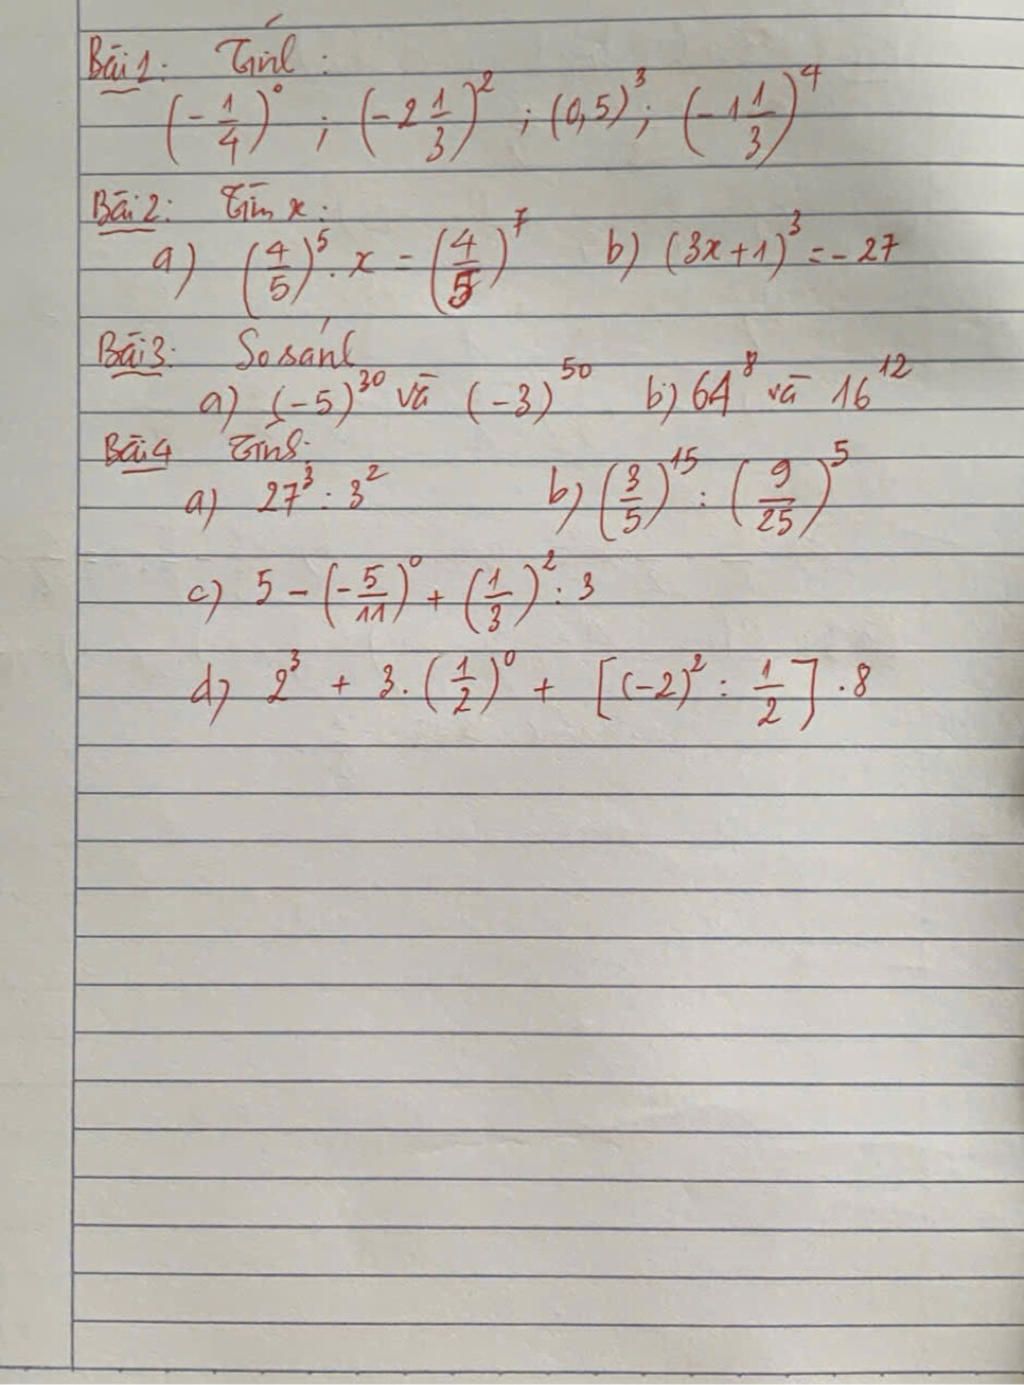 Bài 1: Tính:
(-1/4)⁰ ; (-2 1/3)² ; (0,5)³ ; (-1 1/3)⁴
Bài 2: Tìm x:
a) (4/5)⁵ . x = (4/5)⁷ b) (3x+1)³ = -27
Bài 3: So sánh
a) (-5)³⁰ và (-3)⁵⁰ b) 64⁸ và 16¹²
Bài 4 Tính:
a) 27³ : 3² b) (3/5)¹⁵ : (9/25)⁵
c) 5 - (-5/11)⁰ + (1/3)² : 3
d) 2³ + 3 . (1/2)⁰ + [(-2)² : 1/2] . 8